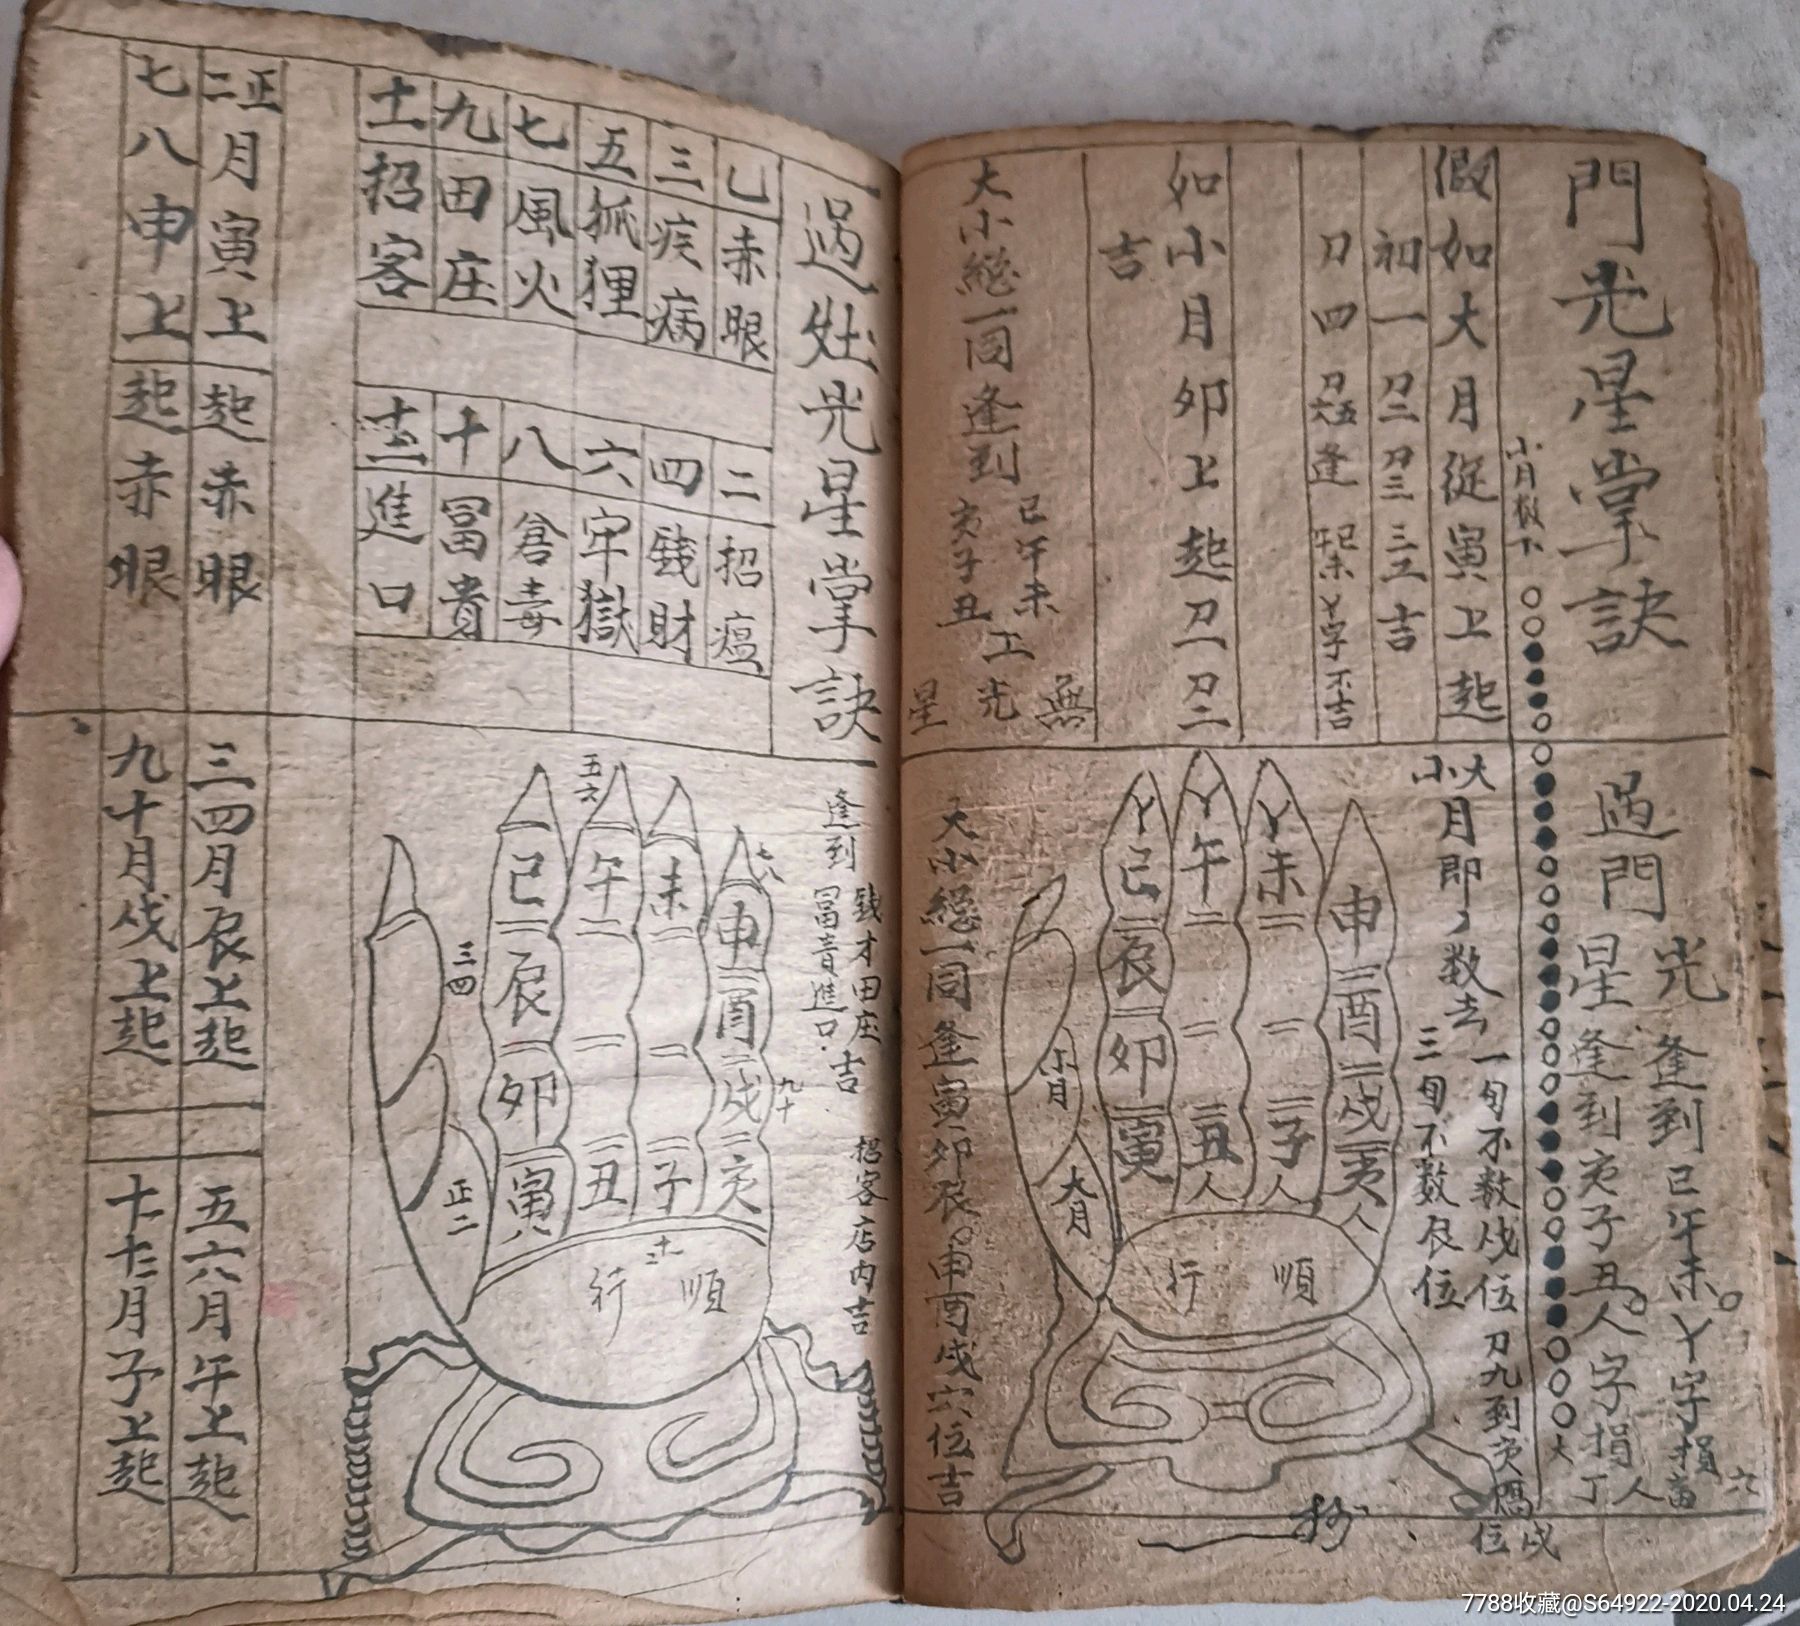 門光星掌訣
過門光星
逢到巳午未丫字損畜
逢到亥子丑人字損人丁
小月数下
大
假如大月從寅上起
初一初二初三三工吉
初四
逢巳午未丫字不吉
如小月卯上起初一初二
吉
大小總一同逢到
巳午未
亥子丑
工
無光星
大小月即丶数去
一旬不数戌位
三旬不数辰位
初九到亥
戌位
丫巳辰卯寅
丫午丑人
丫未子人
申酉戌亥人
小月
大月
順行
大小總一同逢寅卯辰申酉戌六位吉
過灶光星掌訣
乙赤眼
三疾病
五狐狸
七風火
九田庄
十一招客
二招瘟
四錢財
六牢獄
八倉毒
十冨貴
十二進口
逢到
錢才田庄
冨貴進口
吉
招客店内吉
巳辰卯寅
午丑
未子
申酉戌亥
正二
三四
五六
七八
九十
十一二
順行
正二月寅上起赤眼
三四月辰上起
五六月午上起
七八申上起赤眼
九十月戌上起
十十二月子上起
7788收藏@S64922-2020.04.24